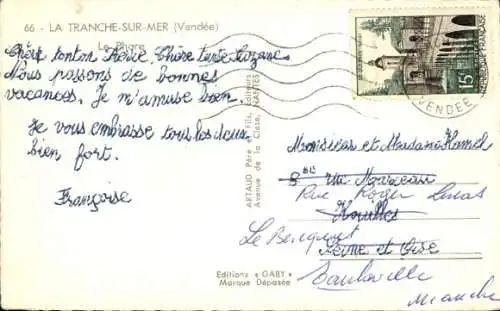 66 - LA TRANCHE-SUR-MER (Vendée)
Le Phare
Chère tonton Chère tante Suzanne
Nous passons de bonnes
vacances. Je m'amuse bien.
Je vous embrasse tous les deux
bien fort.
Françoise
ARTAUD Père et Fils, Editeurs
Avenue de la Close, NANTES
Editions « GABY »
Marque Déposée
15F
VENDEE
Monsieur et Madame Hamel
8 bis rue Marceau
Rue Roger
Houilles
Le
Seine et Oise
Manche